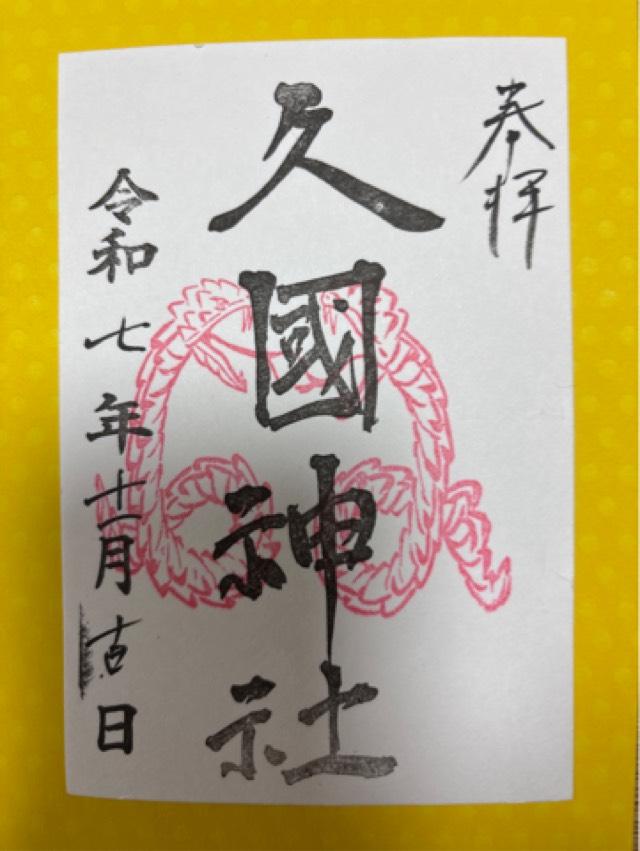 奉拝
久國神社
令和七年十一月吉日